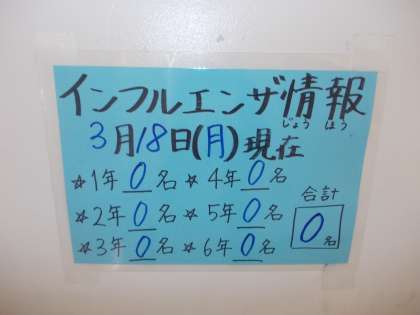 インフルエンザ情報
じょう ほう
3月18日(月)現在
☆1年 0名 ☆4年 0名
☆2年 0名 ☆5年 0名
☆3年 0名 ☆6年 0名
合計
0名